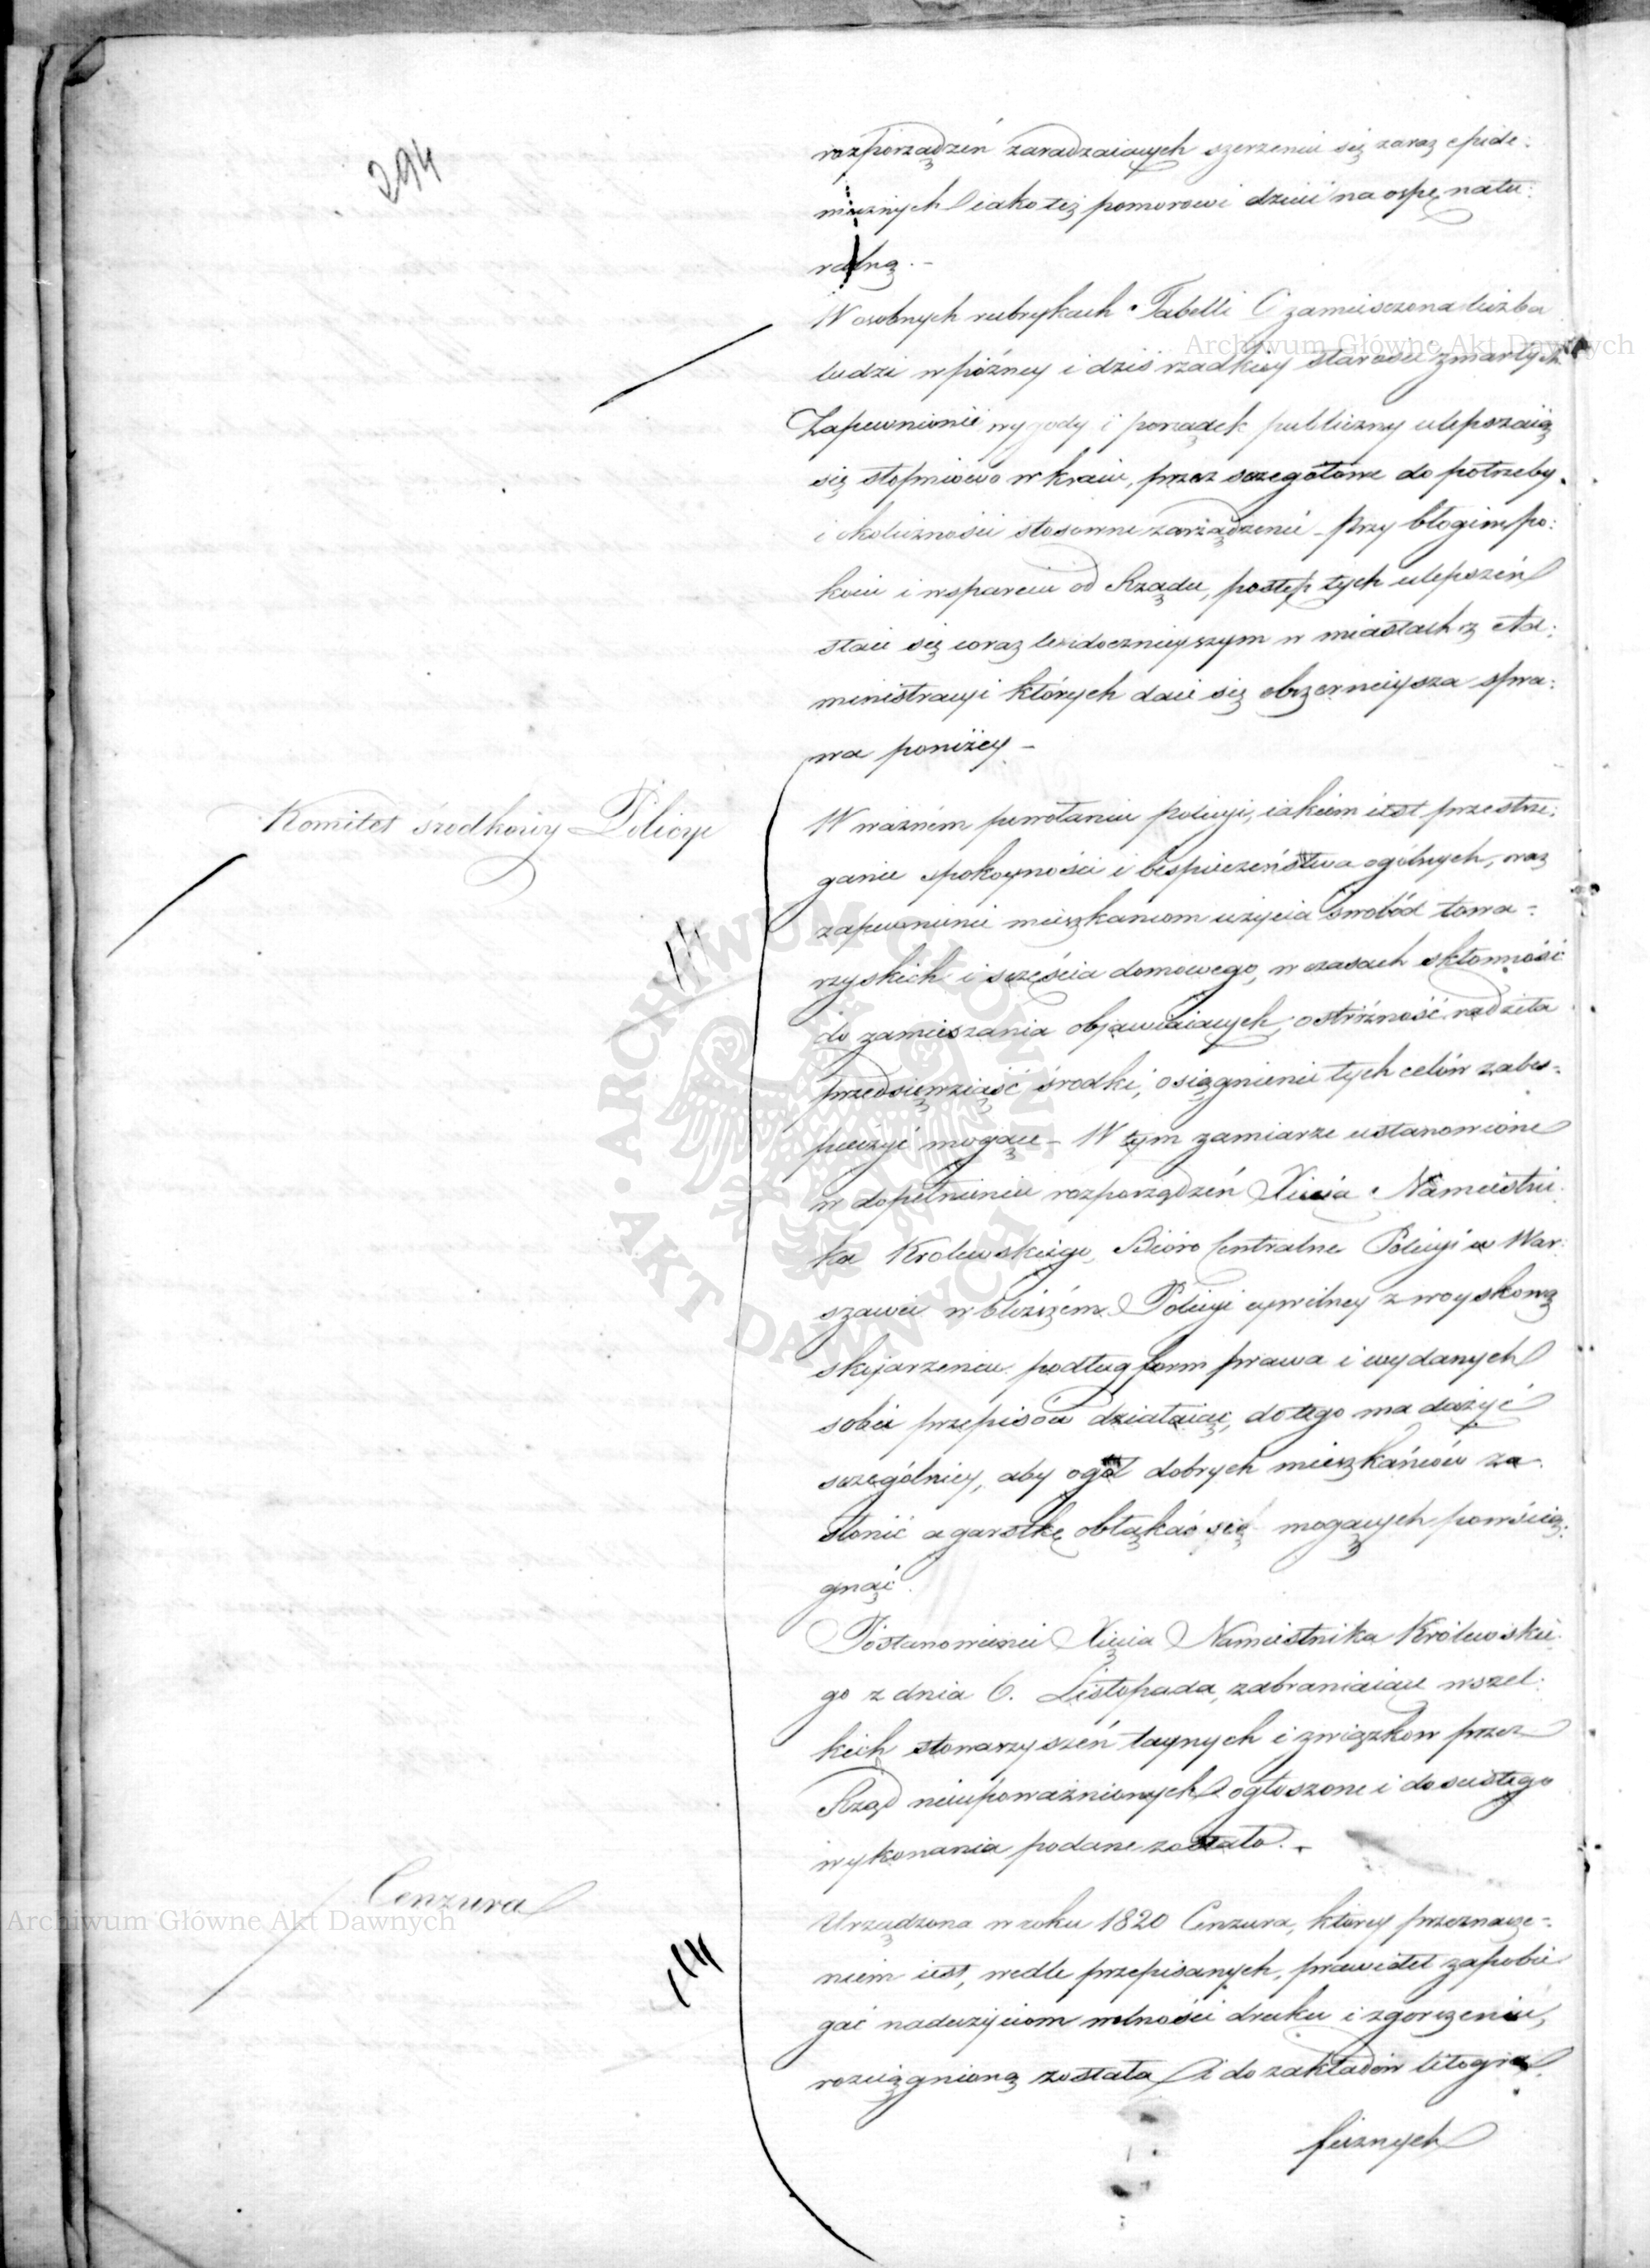 294
rozporządzeń zaradzaiących szerzeniu się zaraz epide:
micznych iako też pomorowi dzieci na ospę natu:
ralną. –
W osobnych rubrykach Tabelli C zamiesczona liczba
ludzi w pózney i dziś rzadkiey starości zmarłych.
Zapewnienie wygody i porządek publiczny ulepszaią
się stopniowo w kraiu, przez szczegółowe do potrzeby
i okoliczności stosowne zarządzenie – Przy błogim po:
koiu i wsparciu od Rządu, postęp tych ulepszeń
staie się coraz widocznieyszym w miastach z Ad:
ministracyi których daie się obszernieysza spra:
wa poniżey –
Komitet środkowy Policyi
W ważnem powołaniu Policyi, iakiem iest przestrze:
ganie spokoyności i bespieczeństwa ogólnych, oraz
zapewnienie mieszkańcom użycia swobód towa-
rzyskich i sczęścia domowego, w czasach skłonność
do zamieszania objawiaiących, ostróżność radziła
przedsięwziąść środki, osiągnienie tych celów zabes-
pieczyć mogące – W tym zamiarze ustanowione
w dopełnieniu rozporządzeń Xięcia Namiestni:
ka Królewskiego, Bióro Centralne Policyi w War:
szawie w bliższém Policyi cywilney z woyskową
skojarzeniu podług form prawa i wydanych
sobie przepisów działaiąc, do tego ma dążyć
szczególniey, aby ogół dobrych mieszkańców za:
słonić a garstkę obłąkać się mogących powścią:
gnąć.
Postanowienie Xięcia Namiestnika Królewskie:
go z dnia 6. Listopada, zabraniaiące wszel:
kich stowarzyszeń taynych i związkow przez
Rząd nieupoważnionych ogłoszone i do scisłego
wykonania podane zostało. –
Cenzura
Urządzona w roku 1820 Cenzura, którey przeznacze-
niem iest, wedle przepisanych prawideł zapobie
gać nadużyciom wolności druku i zgorszeniu,
rozciągnioną została i do zakładów litogra:
ficznych
Archiwum Główne Akt Dawnych
Archiwum Główne Akt Dawnych
ARCHIWUM GŁÓWNE AKT DAWNYCH